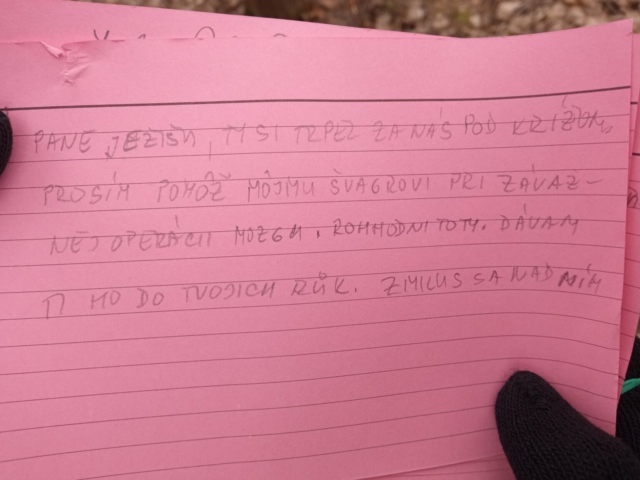 PANE JEŽIŠU, TY SI TRPEL ZA NÁS POD KRÍŽOM,
PROSÍM POMÔŽ MÔJMU ŠVAGROVI PRI ZÁVAŽ-
NEJ OPERÁCII MOZGU. ROHHODNI TO TY. DÁVAM
TI HO DO TVOJICH RÚK. ZMILUJ SA NAD NÍM